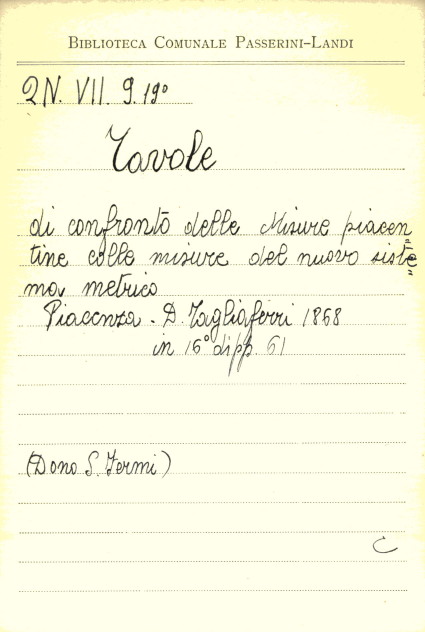 BIBLIOTECA COMUNALE PASSERINI-LANDI
2N. VII. 9.19°
Tavole
di confronto delle Misure piacen
tine colle misure del nuovo siste
ma metrico
Piacenza - D. Tagliaferri 1868
in 16° di pp. 61
(Dono S. Fermi)
C